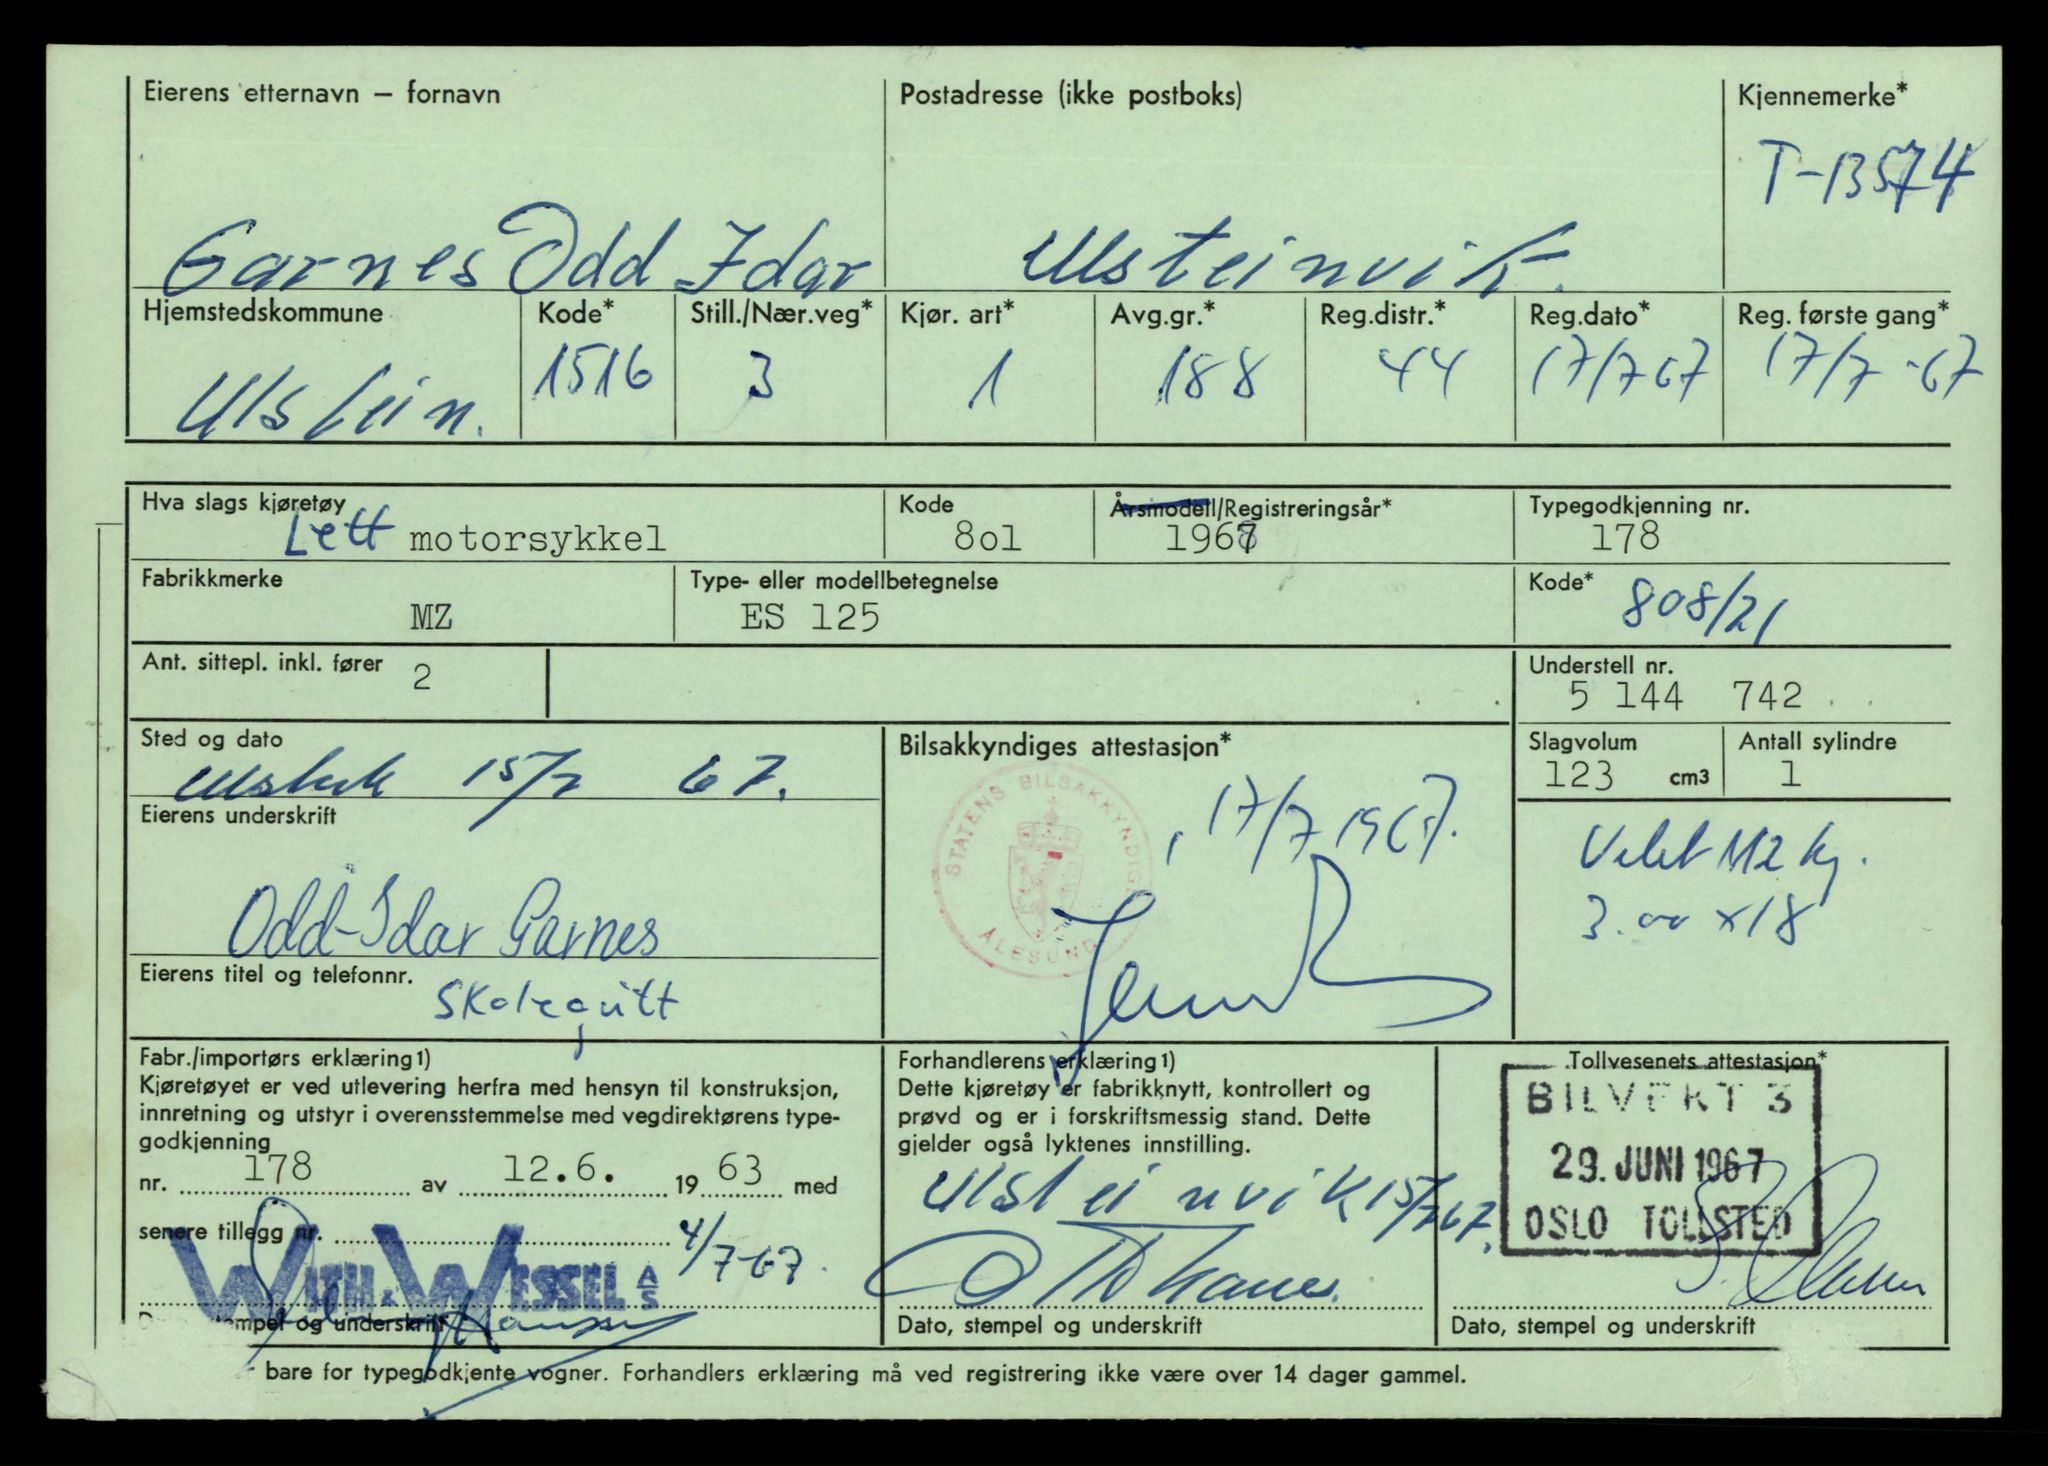 Eierens etternavn – fornavn
Postadresse (ikke postboks)
Kjennemerke*
T-13574
Garnes Odd Idar
Ulsteinvik.
Hjemstedskommune
Kode*
Still./Nær.veg*
Kjør. art*
Avg.gr.*
Reg.distr.*
Reg.dato*
Reg. første gang*
Ulstein.
1516
3
1
188
44
17/7 67
17/7 -67
Hva slags kjøretøy
Lett motorsykkel
Kode
8o1
Årsmodell/Registreringsår*
1967
Typegodkjenning nr.
178
Fabrikkmerke
MZ
Type- eller modellbetegnelse
ES 125
Kode*
808/21
Ant. sittepl. inkl. fører 2
Understell nr.
5 144 742
Sted og dato
15/7 67.
Bilsakkyndiges attestasjon*
Slagvolum
123 cm3
Antall sylindre
1
STATENS BILSAKKYNDIGE
ÅLESUND
17/7 1967.
Eierens underskrift
Odd-Idar Garnes
Vekt 112 kg.
3.00 x 18
Eierens titel og telefonnr.
Skolegutt
Fabr./importørs erklæring1)
Kjøretøyet er ved utlevering herfra med hensyn til konstruksjon,
innretning og utstyr i overensstemmelse med vegdirektørens type-
godkjenning
nr. 178 av 12.6. 19 63 med
senere tillegg nr. 4/7-67.
WITH & WESSEL A/S
stempel og underskrift
Forhandlerens erklæring1)
Dette kjøretøy er fabrikknytt, kontrollert og
prøvd og er i forskriftsmessig stand. Dette
gjelder også lyktenes innstilling.
Ulsteinvik 15/7 67.
Dato, stempel og underskrift
Tollvesenets attestasjon*
BILVEKT 3
29. JUNI 1967
OSLO TOLLSTED
Dato, stempel og underskrift
bare for typegodkjente vogner. Forhandlers erklæring må ved registrering ikke være over 14 dager gammel.